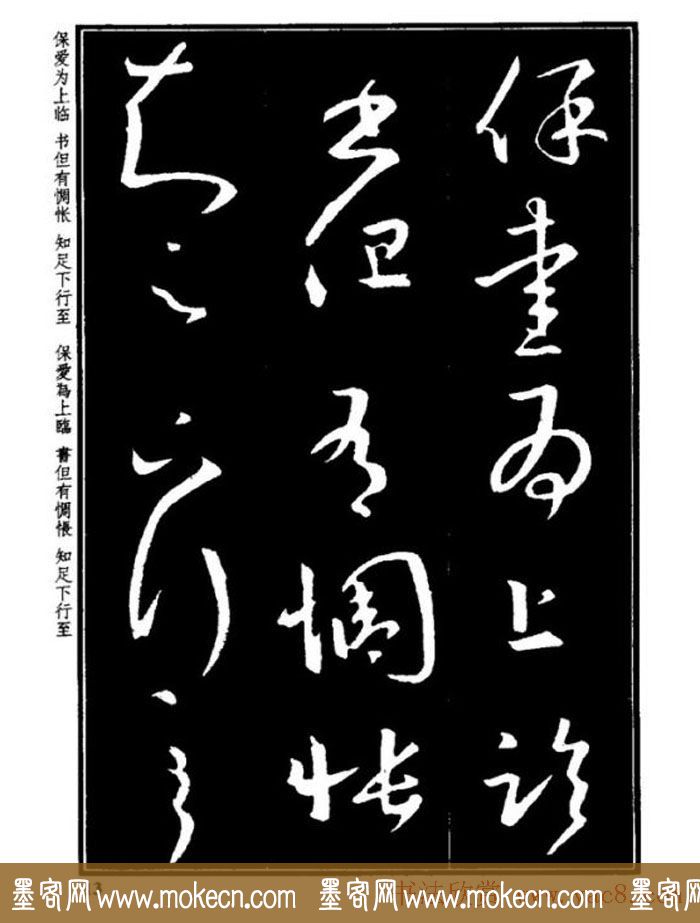 保爱为上临 书但有惆怅 知足下行至 保愛為上臨 書但有惆悵 知足下行至
保愛為上臨
書但有惆悵
知足下行至
3
墨客网 www.mokecn.com 墨客网 www.mokecn.com 墨客网
书法欣赏